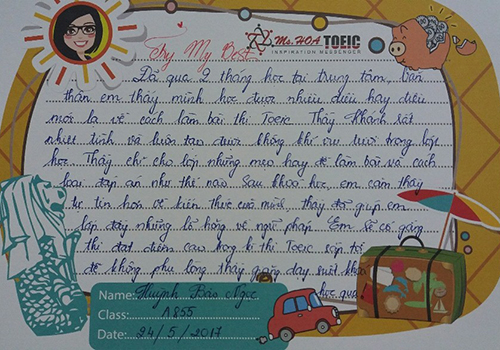 Try My Best
Ms. HOA TOEIC
INSPIRATION MESSENGER
Đã qua 2 tháng học tại trung tâm, bản
thân em thấy mình học được nhiều điều hay điều
mới lạ về cách làm bài thi Toeic. Thầy Khánh rất
nhiệt tình và luôn tạo được không khí vui tươi trong lớp
học. Thầy chỉ cho lớp những mẹo hay để làm bài và cách
loại đáp án như thế nào. Sau khóa học, em cảm thấy
tự tin hơn về kiến thức của mình, thầy đã giúp em
lấp đầy những lỗ hổng về ngữ pháp. Em sẽ cố gắng
thi đạt điểm cao trong kì thi Toeic sắp tới
để không phụ lòng thầy giảng dạy suốt khóa
học qua!
Name: Huỳnh Bảo Ngọc
Class: A855
Date: 24/5/2017